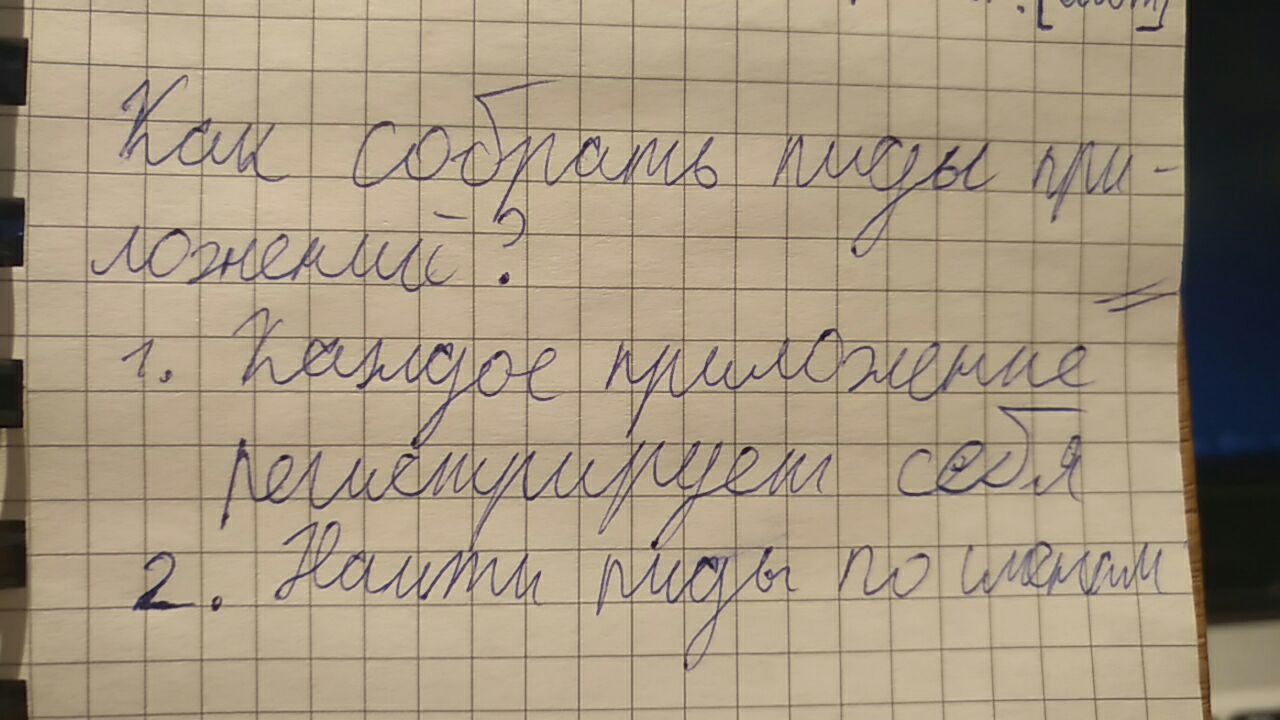 Как собрать пиды при-
ложений?
1. Каждое приложение
регистрирует себя
2. Найти пиды по именам